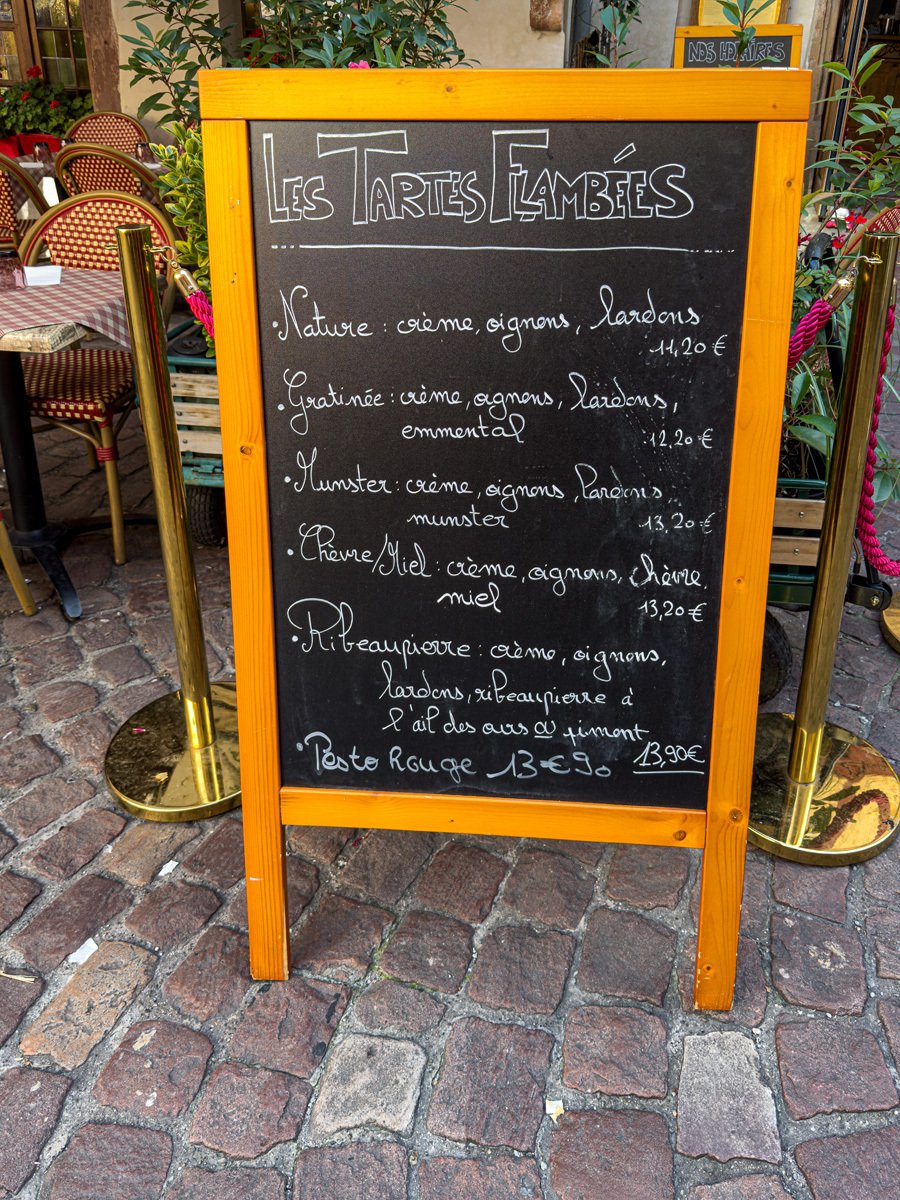 NOS HORAIRES
LES TARTES FLAMBÉES
• Nature : crème, oignons, lardons
11,20 €
• Gratinée : crème, oignons, lardons,
emmental
12,20 €
• Munster : crème, oignons, lardons
munster
13,20 €
• Chèvre/Miel : crème, oignons, chèvre,
miel
13,20 €
• Ribeaupierre : crème, oignons,
lardons, ribeaupierre à
l'ail des ours @ piment
13,90€
• Pesto Rouge 13€90